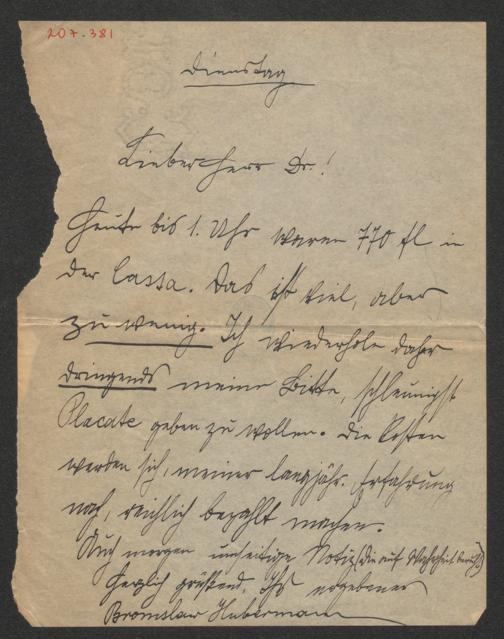 207.381
Dienstag
Lieber Herr Dr.!
Heute bis 1. Uhr waren 770 fl in
der Cassa. Das ist viel, aber
zu wenig. Ich wiederhole daher
dringends meine Bitte, schleunigst
Placate geben zu wollen. Die Kosten
werden sich, meiner langjähr. Erfahrung
nach, reichlich bezahlt machen.
Auch morgen Notiz (die auf Wahrheit beruht)
Herzlich grüßend, Ihr ergebener
Bronislaw Hubermann